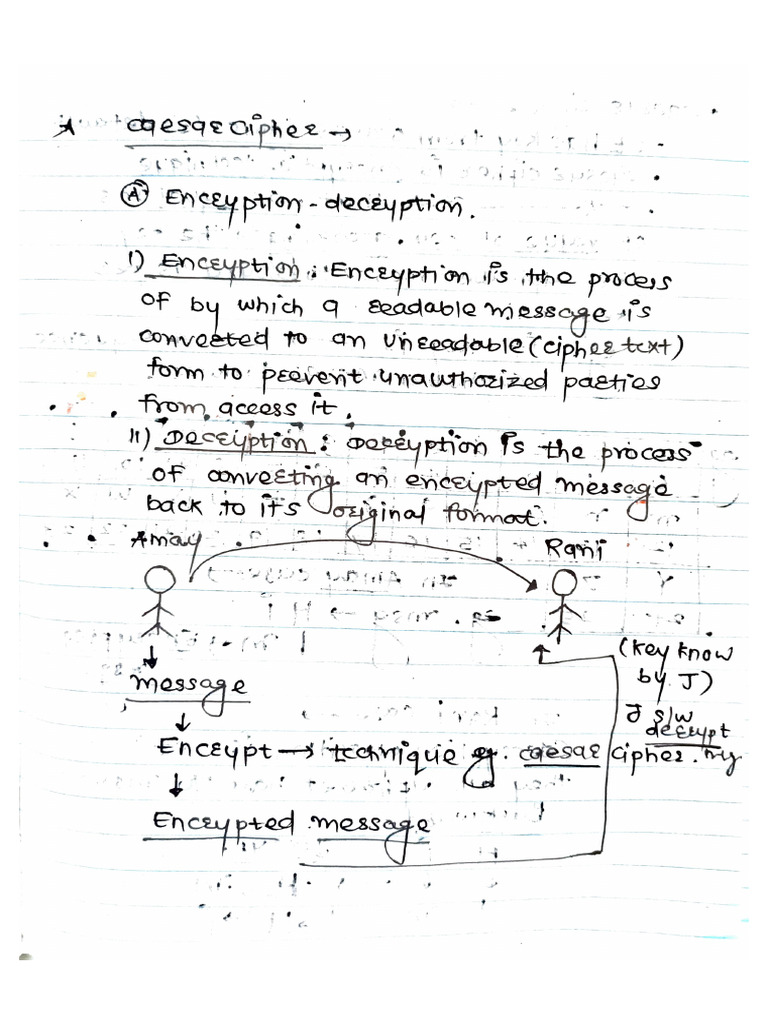 * Caesar Cipher →
(A) Encryption - decryption.
I) Encryption : Encryption is the process
of by which a readable message is
converted to an unreadable (cipher text)
form to prevent unauthorized parties
from access it.
II) Decryption : Decryption is the process
of converting an encrypted message
back to it's original format.
Amay Rani
(key know
by J)
↓
message
s/w
decrypt
↓
Encrypt → technique eg. caesar cipher.
↓
Encrypted message